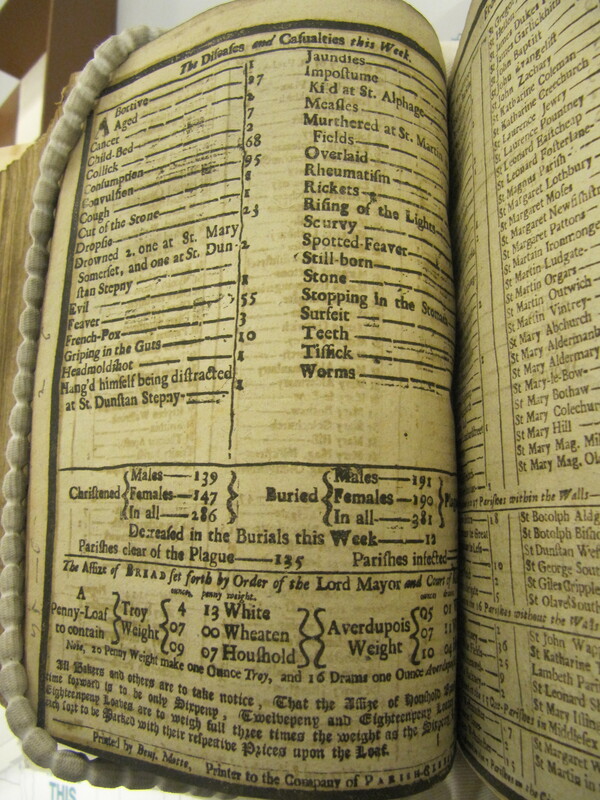 The Diseases and Casualties this Week.
Abortive 1
Aged 27
Cancer 2
Child-Bed 7
Collick 2
Consumption 68
Convulsion 95
Cough
Cut of the Stone 1
Dropsie 23
Drowned 2. one at St. Mary
Somerset, and one at St. Dun- 2
stan Stepny
Evil
Feaver 55
French-Pox 3
Griping in the Guts 10
Headmoldshot 1
Hang'd himself being distracted 1
at St. Dunstan Stepny
Jaundies
Impostume
Ki'd at St. Alphage
Measles
Murthered at St. Martin
Fields
Overlaid
Rheumatism
Rickets
Rising of the Lights
Scurvy
Spotted-Feaver
Still-born
Stone
Stopping in the Stomach
Surfeit
Teeth
Tissick
Worms
Christened
Males 139
Females 147
In all 286
Buried
Males 191
Females 190
In all 381
Decreased in the Burials this Week 12
Parishes clear of the Plague 135 Parishes infected
The Assize of BREAD set forth by Order of the Lord Mayor and Court of
A
Penny-Loaf
to contain
Troy
Weight
ounces. penny weight.
4 13 White
07 00 Wheaten
09 07 Houshold
Averdupois
Weight
05
07
10
Note, 20 Penny Weight make one Ounce Troy, and 16 Drams one Ounce Averdupois
All Bakers and others are to take notice, That the Assize of Houshold
time forward is to be only Sixpeny, Twelvepeny and Eighteenpeny
Eighteenpeny Loaves are to weigh full three times the weight as the Sixpeny
each sort to be Marked with their respective Prices upon the Loaf.
Printed by Benj. Motte, Printer to the Company of PARISH-CLERKS
St James Garlickhith
St John Baptist
St John Evangelist
St John Zachary
St Katharine Coleman
St Katharine Creechurch
St Laurence Jewry
St Laurence Pountney
St Leonard Eastcheap
St Leonard Fosterlane
St Magnus Parish
St Margaret Lothbury
St Margaret Moses
St Margaret Newfishstr
St Margaret Pattons
St Martin Ironmonge
St Martin Ludgate
St Martin Orgars
St Martin Outwich
St Martin Vintrey
St Mary Abchurch
St Mary Aldermanb
St Mary Aldermary
St Mary-le-Bow
St Mary Bothaw
St Mary Colechur
St Mary Hill
St Mary Mag. Mil
St Mary Mag. Ol
Parishes within the Walls
St Botolph Aldg
St Botolph Bisho
St Dunstan West
St George Sout
St Giles Cripple
St Olave South
16 Parishes without the Walls
St John Wapp
St Katharine
Lambeth Pari
St Leonard Sh
St Mary Isling
Parishes in Middlesex
St Margaret W
St Martin in
THIS